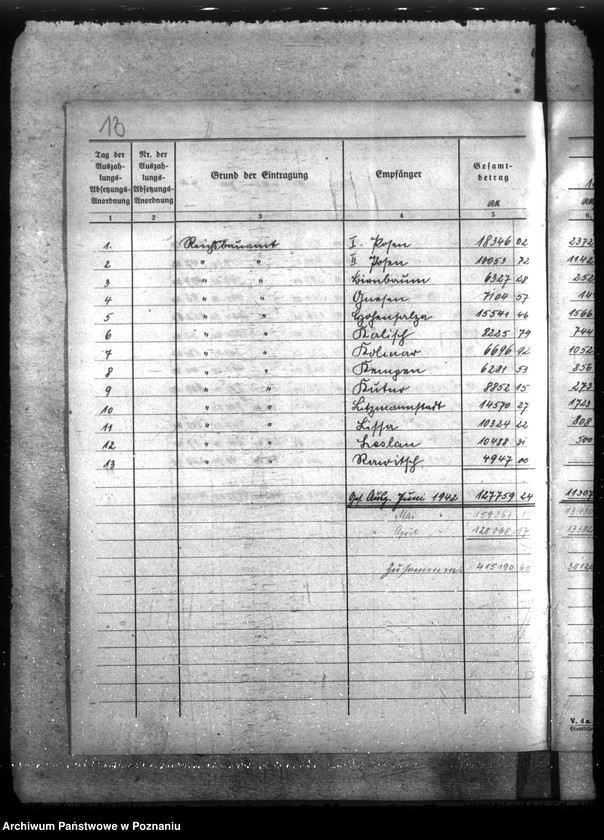 13
Tag der Auszah-lungs-Absetzungs-Anordnung | Nr. der Auszah-lungs-Absetzungs-Anordnung | Grund der Eintragung | Empfänger | Gesamt-betrag
RM
1 | 2 | 3 | 4 | 5 | 6
1. Reichsbauamt I. Posen 18346 02 2372
2 " " II Posen 10053 72 1142
3 " " Birnbaum 6327 28 252
4 " " Gnesen 7104 57 14
5 " " Hohensalza 15541 46 1566
6 " " Kalisch 8225 79 744
7 " " Kolmar 6696 92 1052
8 " " Kempen 6281 53 856
9 " " Kutno 8852 15 273
10 " " Litzmannstadt 14570 27 1723
11 " " Lissa 10324 22 808
12 " " Leslau 10488 31 500
13 " " Rawitsch 4947 00
Ges. Ausg. Juni 1942 127759 24 11307
" Mai "
" April " 128068 17
Zusammen: 415190 60
V. 4a.
Archiwum Państwowe w Poznaniu